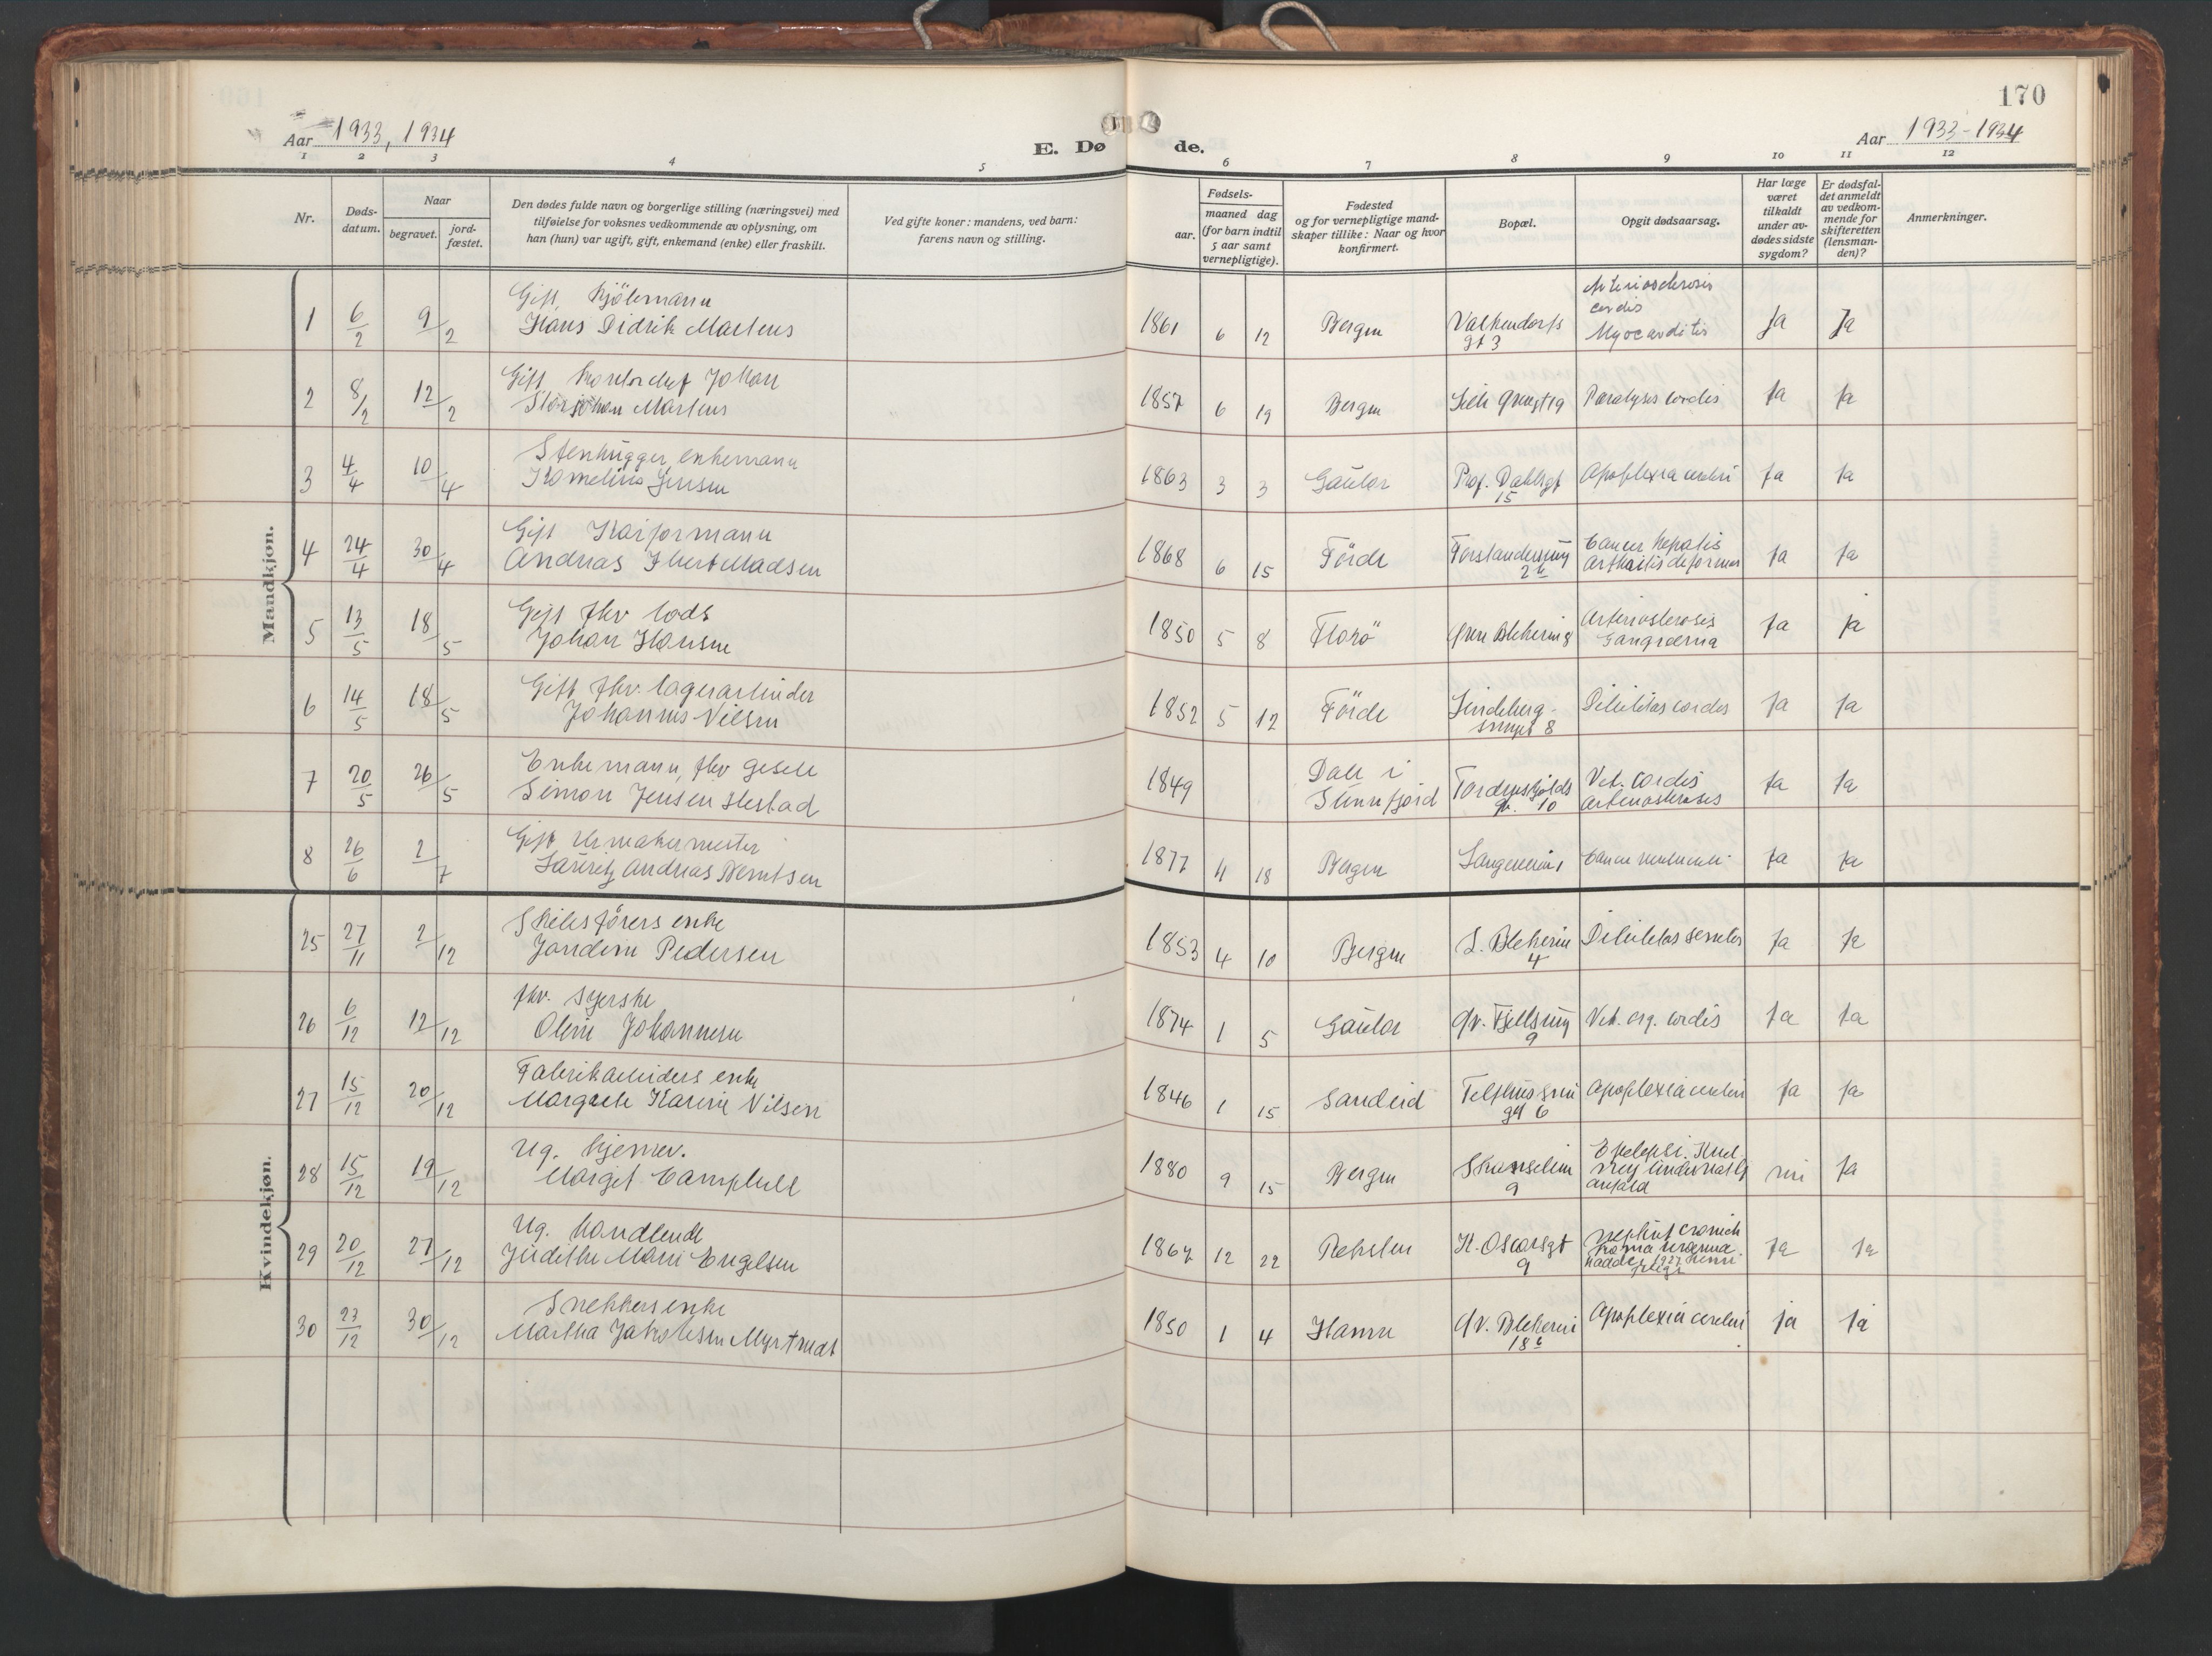 170
Aar 1933, 1934
E. Døde.
Aar 1933-1934
1 2 3 4 5 6 7 8 9 10 11 12
Nr.
Døds-
datum.
Naar
begravet.
jord-
fæstet.
Den dødes fulde navn og borgerlige stilling (næringsvei) med
tilføielse for voksnes vedkommende av oplysning, om
han (hun) var ugift, gift, enkemand (enke) eller fraskilt.
Ved gifte koner: mandens, ved barn:
farens navn og stilling.
Fødsels-
aar.
maaned dag
(for barn indtil
5 aar samt
vernepligtige).
Fødested
og for vernepligtige mand-
skaper tillike: Naar og hvor
konfirmert.
Bopæl.
Opgit dødsaarsag.
Har læge
været
tilkaldt
under av-
dødes sidste
sygdom?
Er dødsfal-
det anmeldt
av vedkom-
mende for
skifteretten
(lensman-
den)?
Anmerkninger.
Mandkjøn.
1 6/2 9/2 Gift, kjøbmann
Hans Didrik Martens
1861 6 12 Bergen Valkendorfs
gt 3
Arteriosclerosis
cordis
Myocarditis
Ja Ja
2 8/2 12/2 Gift Kontorchef Johan
Storjohan Martens
1857 6 19 Bergen Paralysis cordis Ja Ja
3 4/4 10/4 Stenhugger, enkemann
Kornelius Jensen
1863 3 3 Gaular Prof. Dahlsgt
15
Apoplexia cerebri Ja Ja
4 24/4 30/4 Gift Kaiformann
Andreas Madsen
1868 6 15 Förde
Cancer hepatis
Arthritis deformans
Ja Ja
5 13/5 18/5 Gift fhv lods
Johan Hansen
1850 5 8 Florö Øvre Blekeri
Arteriosclerosis
Gangraena
Ja Ja
6 14/5 18/5 Gift fhv. lagerarbeider
Johannes Nilsen
1852 5 12 Förde Lindeberg-
smuget 8
Debilitas cordis Ja Ja
7 20/5 26/5 Enkemann, fhv gesell
Simon Jensen Hestad
1849 Dale i
Sunnfjord
Tordenskjolds
gt. 10
Vit. cordis
arteriosclerosis
Ja Ja
8 26/6 2/7 Gift Urmakermester
Lauritz Andreas Berntsen
1877 4 18 Bergen Cancer ventriculi Ja Ja
Kvindekjøn.
25 27/11 2/12 Skibsførers enke
Jandine Pedersen
1853 4 10 Bergen
4
Debilitas senilis Ja Ja
26 6/12 12/12 fhv. syerske
Oline Johannesen
1874 1 5 Gaular Øv. Fjellsmug
9
Vit. org. cordis Ja Ja
27 15/12 20/12 Fabrikarbeiders enke
Margrete Karine Nilsen
1846 1 15 Sandeid
gt 6
Apoplexia cerebri Ja Ja
28 15/12 19/12 Ug. hjemmev.
Margit Campbell
1880 9 15 Bergen
9
Epilepsi.
anfald
nei Ja
29 20/12 27/12 Ug. handlende
Judithe Marie Engelsen
1867 12 22 K. Oscarsgt
9
Ja Ja
30 23/12 30/12 Snekkers enke
Martha Jakobsen
1850 1 4 Hamre Øv. Blekeri
18 b
Apoplexia cerebri ja ja